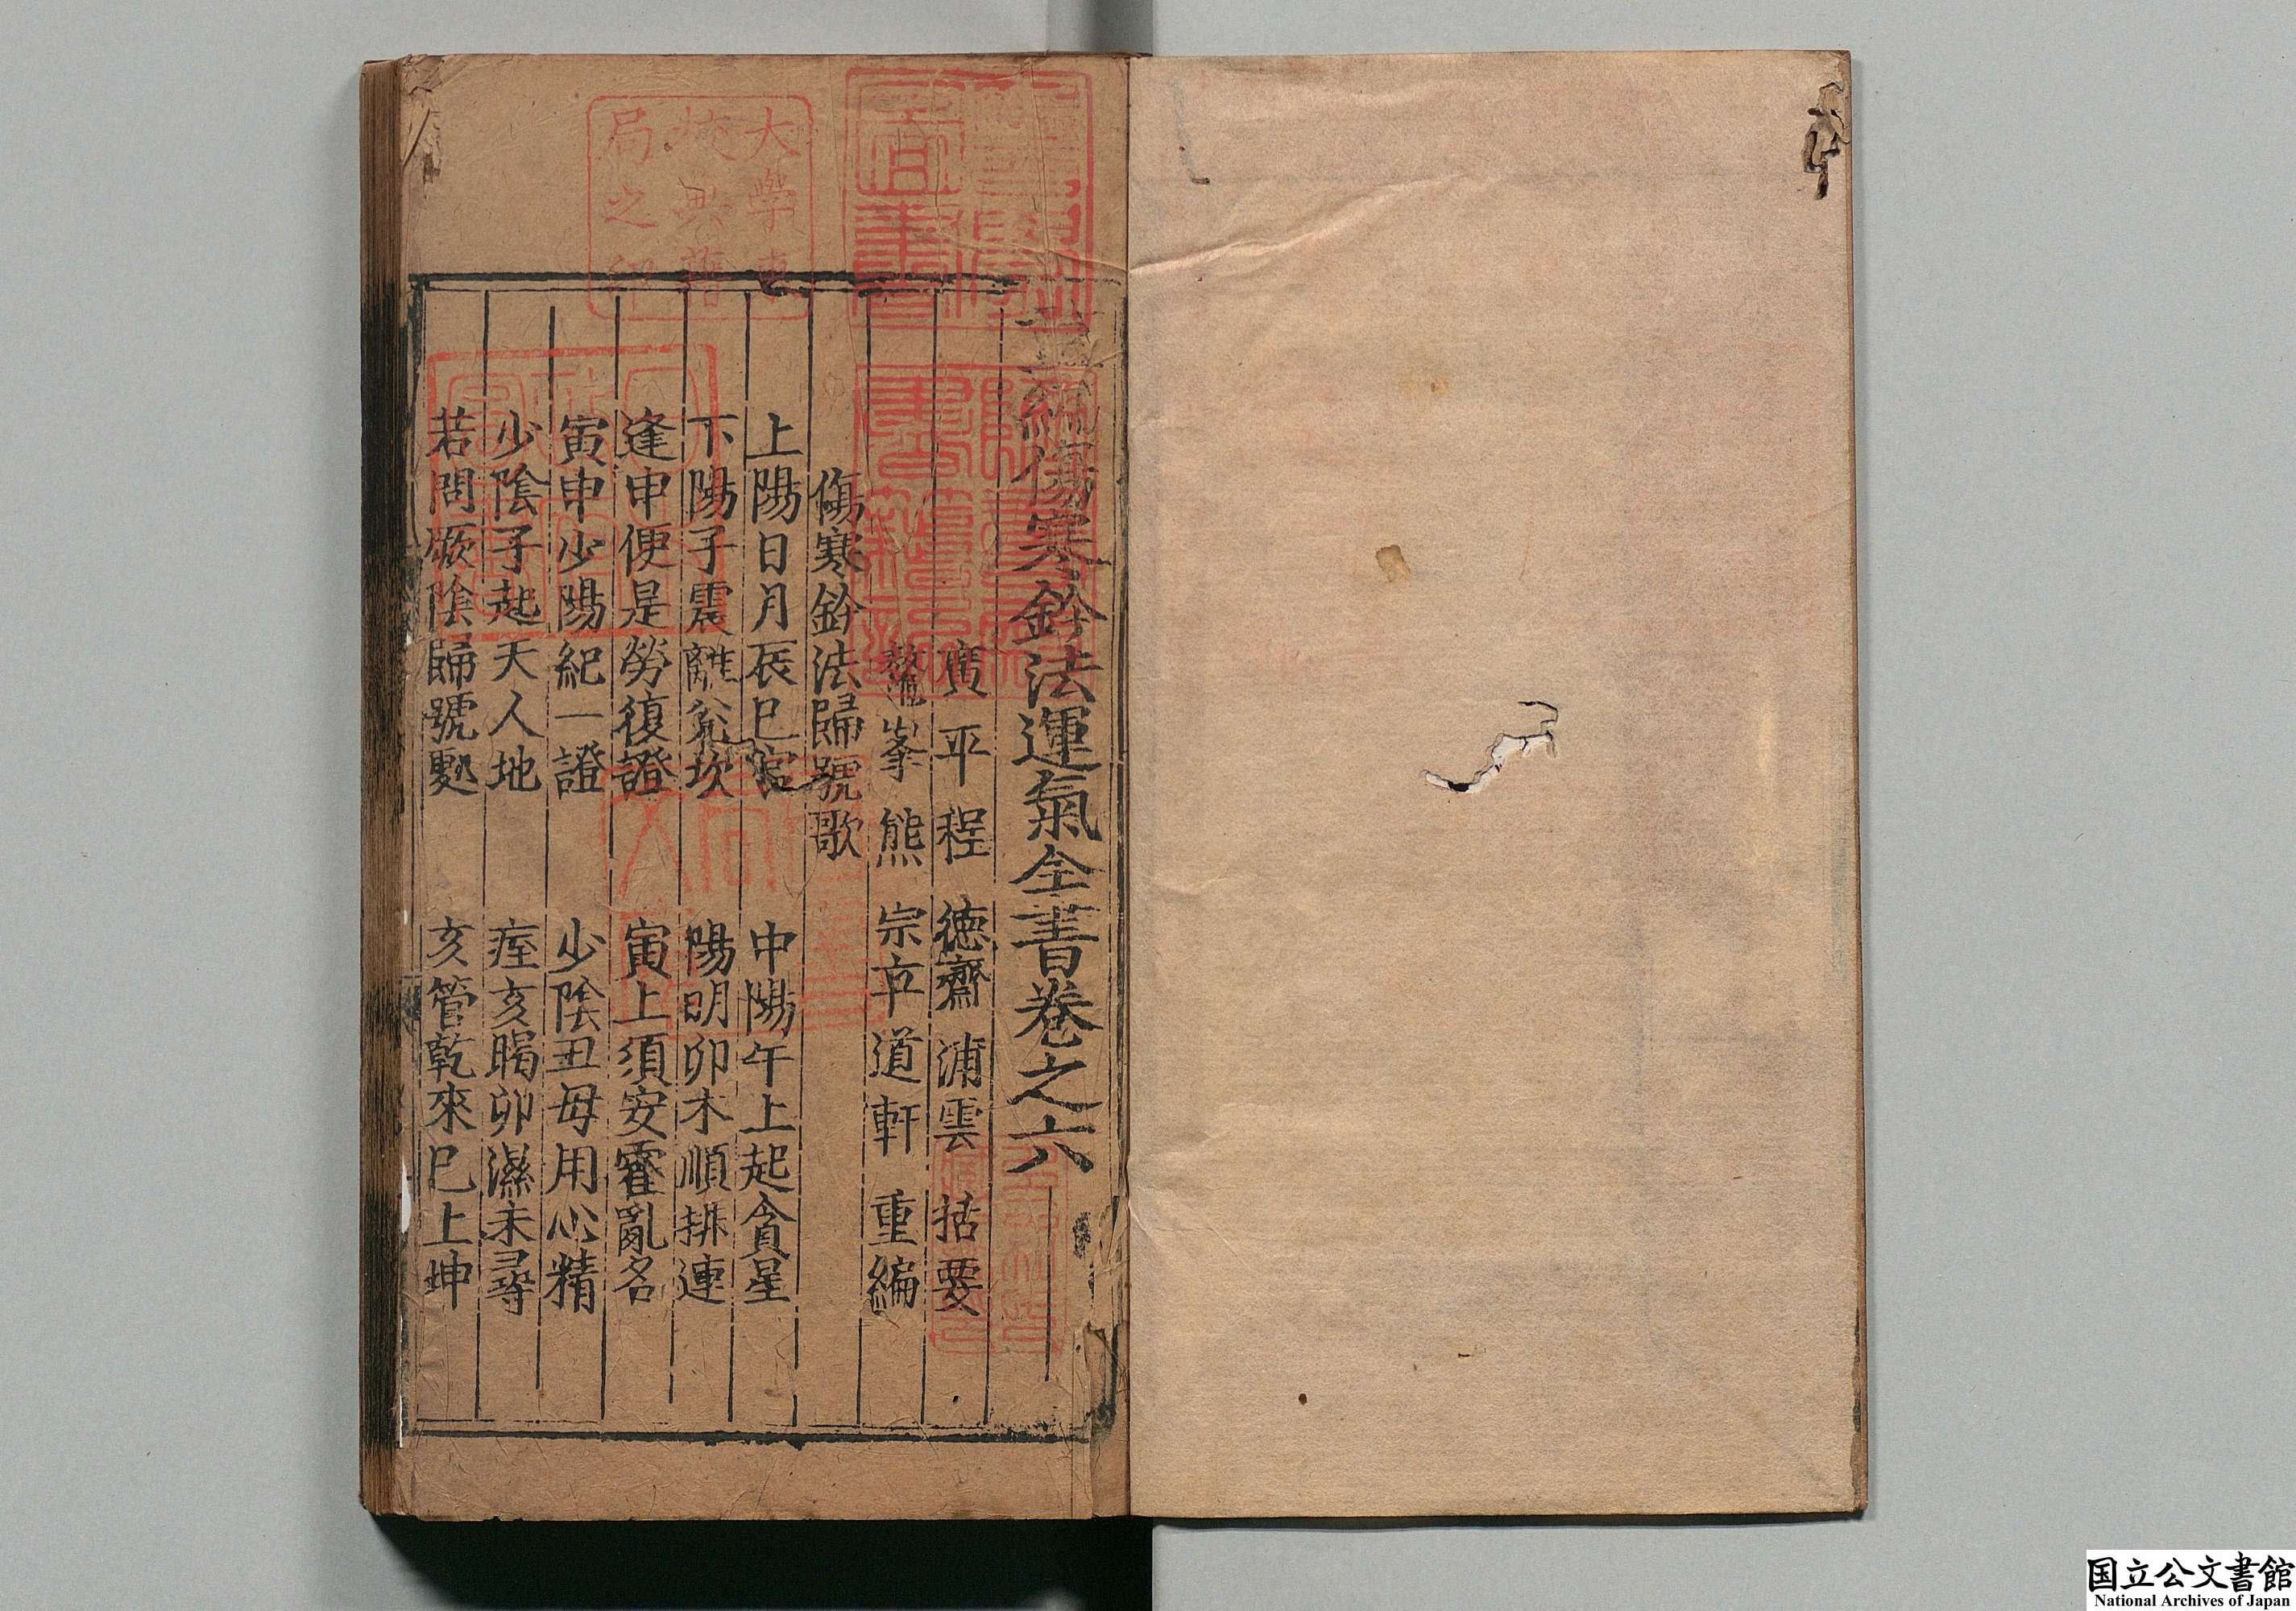 編傷寒鈐法運氣全書卷之六
廣平程德齋浦雲括要
鰲峯熊宗立道軒重編
傷寒鈐法歸號歌
上陽日月辰巳官 中陽午上起貪星
下陽子震離兊坎 陽明卯木順排連
逢申便是勞復證 寅上須安霍亂名
寅申少陽紀一證 少陰丑毋用心精
少陰子起天人地 痓亥暍卯濕未尋
若問厥陰歸號 亥管乾來巳上坤
大學東
校典籍
局之印
国立公文書館
National Archives of Japan